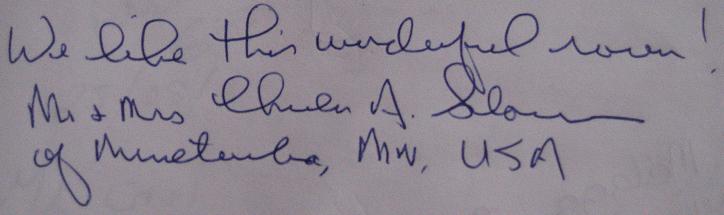 We like this wonderful room!
Mr & Mrs Charles A.
of Minnetonka, MN, USA